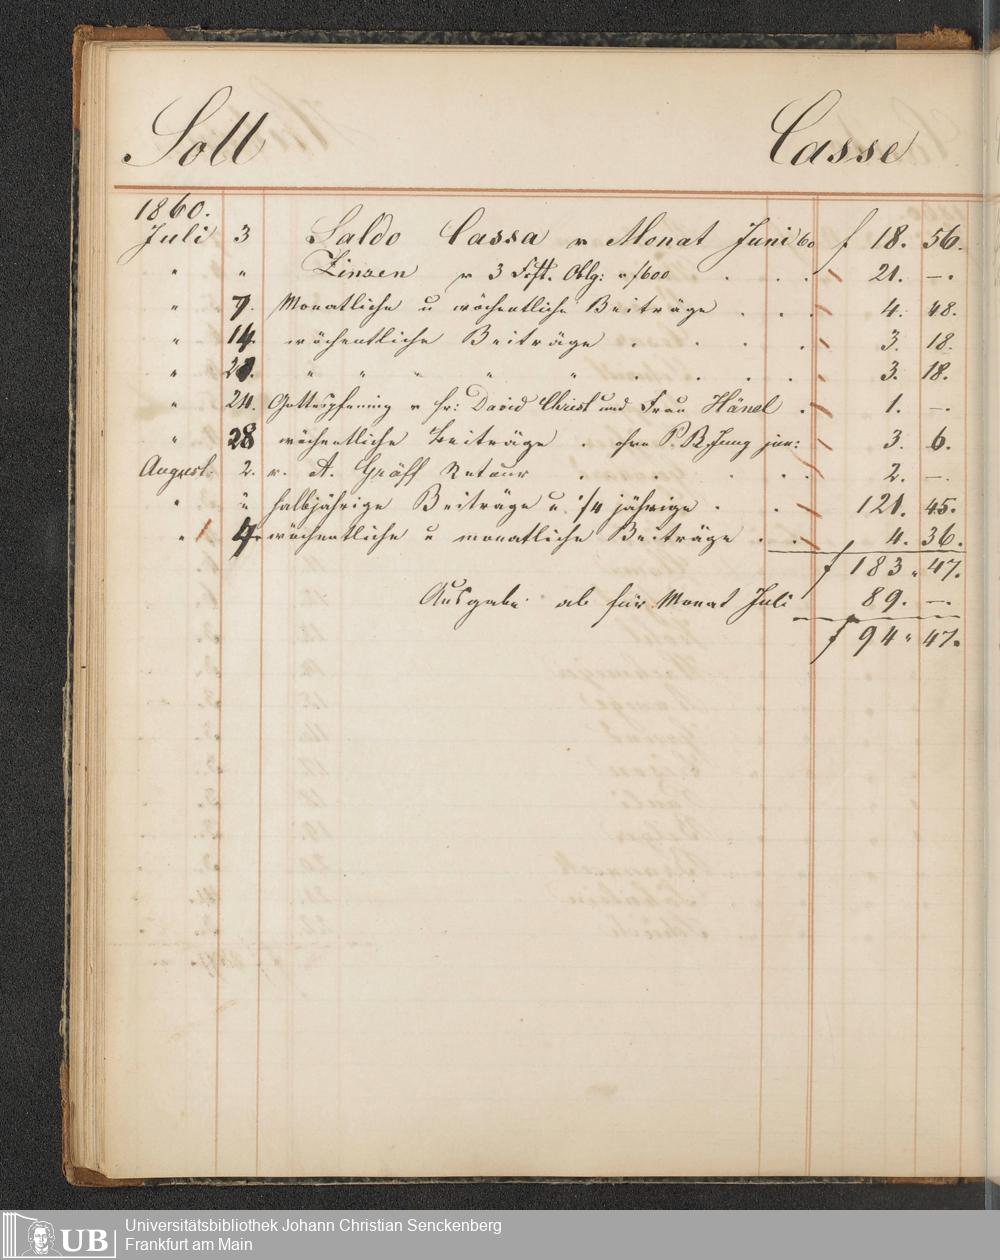 Soll Casse
1860.
Juli 3 Saldo Cassa v Monat Juni 60 f 18. 56.
" " Zinsen v 3 Frkft. Oblg: v f600 21. —.
" 7. Monatliche u wöchentliche Beiträge 4. 48.
" 14. wöchentliche Beiträge 3. 18.
" 21. " " " " " 3. 18.
" 24. Gottespfennig v Hr: David Christ und Frau Hänel 1. —.
" 28 wöchentliche Beiträge . P. R. Jung jun: 3. 6.
August. 2. v. A. Gräff Retour 2. —.
" " halbjährige Beiträge u 1/4 jährige 121. 45.
" 4. wöchentliche u monatliche Beiträge 4. 36.
f 183 " 47.
Ausgabe ab für Monat Juli 89. —.
f 94 " 47.
UB Universitätsbibliothek Johann Christian Senckenberg
Frankfurt am Main